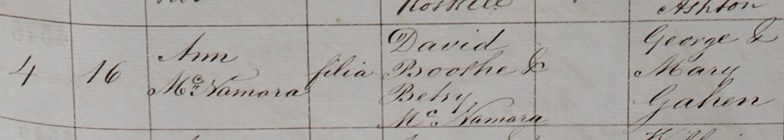 Ashton
4 16 Ann McNamara filia David Boothe & Betsy McNamara George & Mary Gahen